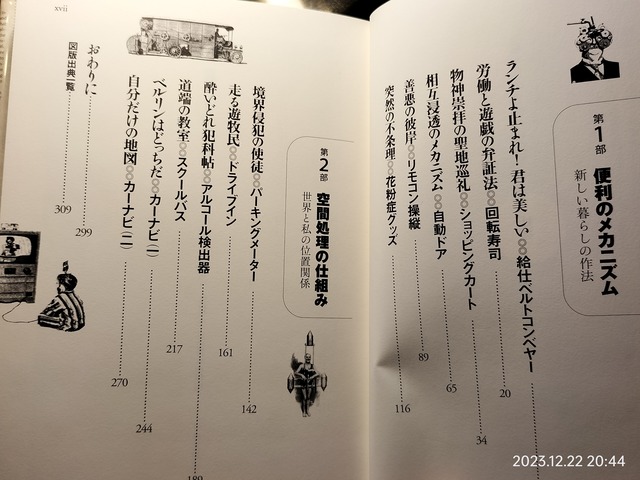 第1部 便利のメカニズム
新しい暮らしの作法
ランチよ止まれ!君は美しい○○給仕ベルトコンベヤー
労働と遊戯の弁証法○○回転寿司 20
物神崇拝の聖地巡礼○○ショッピングカート 34
相互浸透のメカニズム○○自動ドア 65
善悪の彼岸○○リモコン操縦 89
突然の不条理○○花粉症グッズ 116
第2部 空間処理の仕組み
世界と私の位置関係
境界侵犯の使徒○○パーキングメーター 142
走る遊牧民○○ドライブイン 161
酔いどれ犯科帖○○アルコール検出器 189
道端の教室○○スクールバス 217
ベルリンはどっちだ○○カーナビ(一) 244
自分だけの地図○○カーナビ(二) 270
おわりに 299
図版出典一覧 309
xvii
2023.12.22 20:44